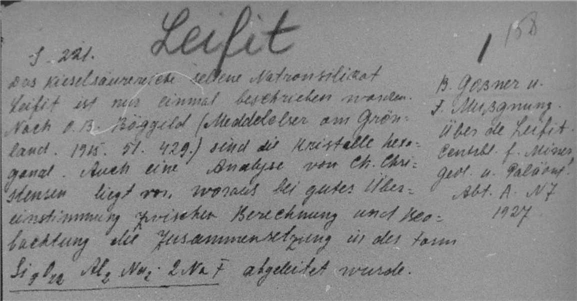 Leifit
1 158
S. 221.
Das kieselsäurereiche seltene Natronsilikat
Leifit ist nur einmal beschrieben worden.
Nach O. B. Böggild (Meddelelser om Grön-
land. 1915. 51. 429.) sind die Kristalle hexa-
gonal. Auch eine Analyse von Ch. Chri-
stensen liegt vor, woraus bei guter Über-
einstimmung zwischen Berechnung und Beo-
bachtung die Zusammensetzung in der Form
Si₉O₂₂ Al₂ Na₂ · 2 Na F abgeleitet wurde.
B. Gossner u.
F. Mussgnung.
Über de Leifit.
Centrbl. f. Miner.
geol. u. Paläont.
Abt. A. N 7
1927.